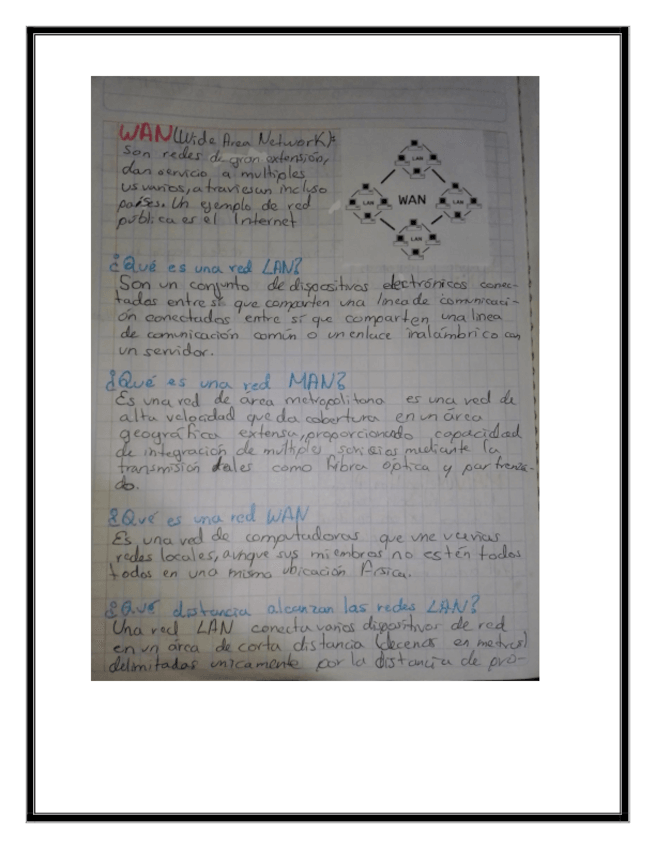 WAN (Wide Area Network):
Son redes de gran extensión,
dan servicio a multiples
usuarios, atraviesan incluso
países. Un ejemplo de red
publica es el Internet
LAN
LAN
WAN
LAN
LAN
¿Qué es una red LAN?
Son un conjunto de dispositivos electrónicos conec-
tados entre sí que comparten una linea de comunicaci-
ón conectados entre sí que comparten una linea
de comunicación común o un enlace inalámbrico con
un servidor.
¿Qué es una red MAN?
Es una red de área metropolitana es una red de
alta velocidad que da cobertura en un área
geográfica extensa, proporcionado capacidad
de integración de multiples servicios mediante la
transmisión tales como fibra óptica y par trenza-
do.
¿Qué es una red WAN
Es una red de computadoras que une varias
redes locales, aunque sus miembros no estén todos
todos en una misma ubicación física.
¿Qué distancia alcanzan las redes LAN?
Una red LAN conecta varios dispositivos de red
en un área de corta distancia (decenas en metros)
delimitadas unicamente por la distancia de pro-